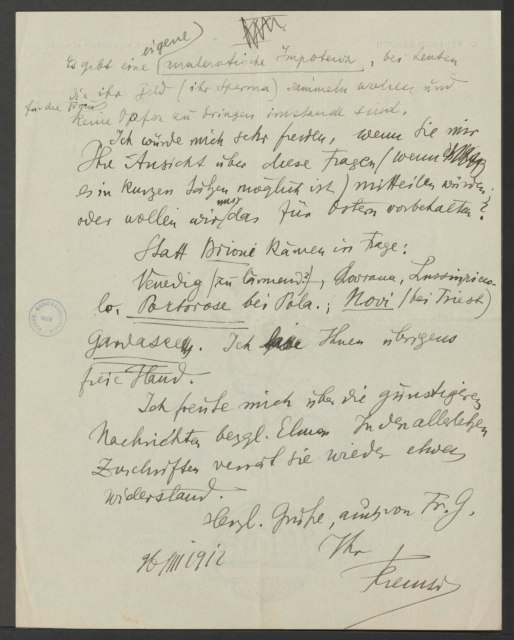 eigene)
Es gibt eine (materatische Impotenz, bei Leuten
die ihr Geld (ihr Sperma) sammeln wollen und
für die
keine Opfer zu bringen imstande sind.
Ich würde mich sehr freuen, wenn Sie mir
Ihre Ansicht über diese Fragen (wenn
es in kurzen Sätzen möglich ist) mitteilen würden.
oder wollen wir uns das für Ostern vorbehalten?
Statt Brioni kämen in Frage:
Venedig (zu lärmend?), Lovrana, Lussinpicco-
lo. Portorose bei Pola.; Novi (bei Triest)
Gardasee. Ich lasse Ihnen übrigens
freie Hand.
Ich freute mich über die günstigeren
Nachrichten bezgl. Elma. In den allerletzten
Zuschriften verrät sie wieder etwas
widerstand.
Herzl. Grüße, auch von Fr. G.
Ihr
26/III 1912
Ferenczi